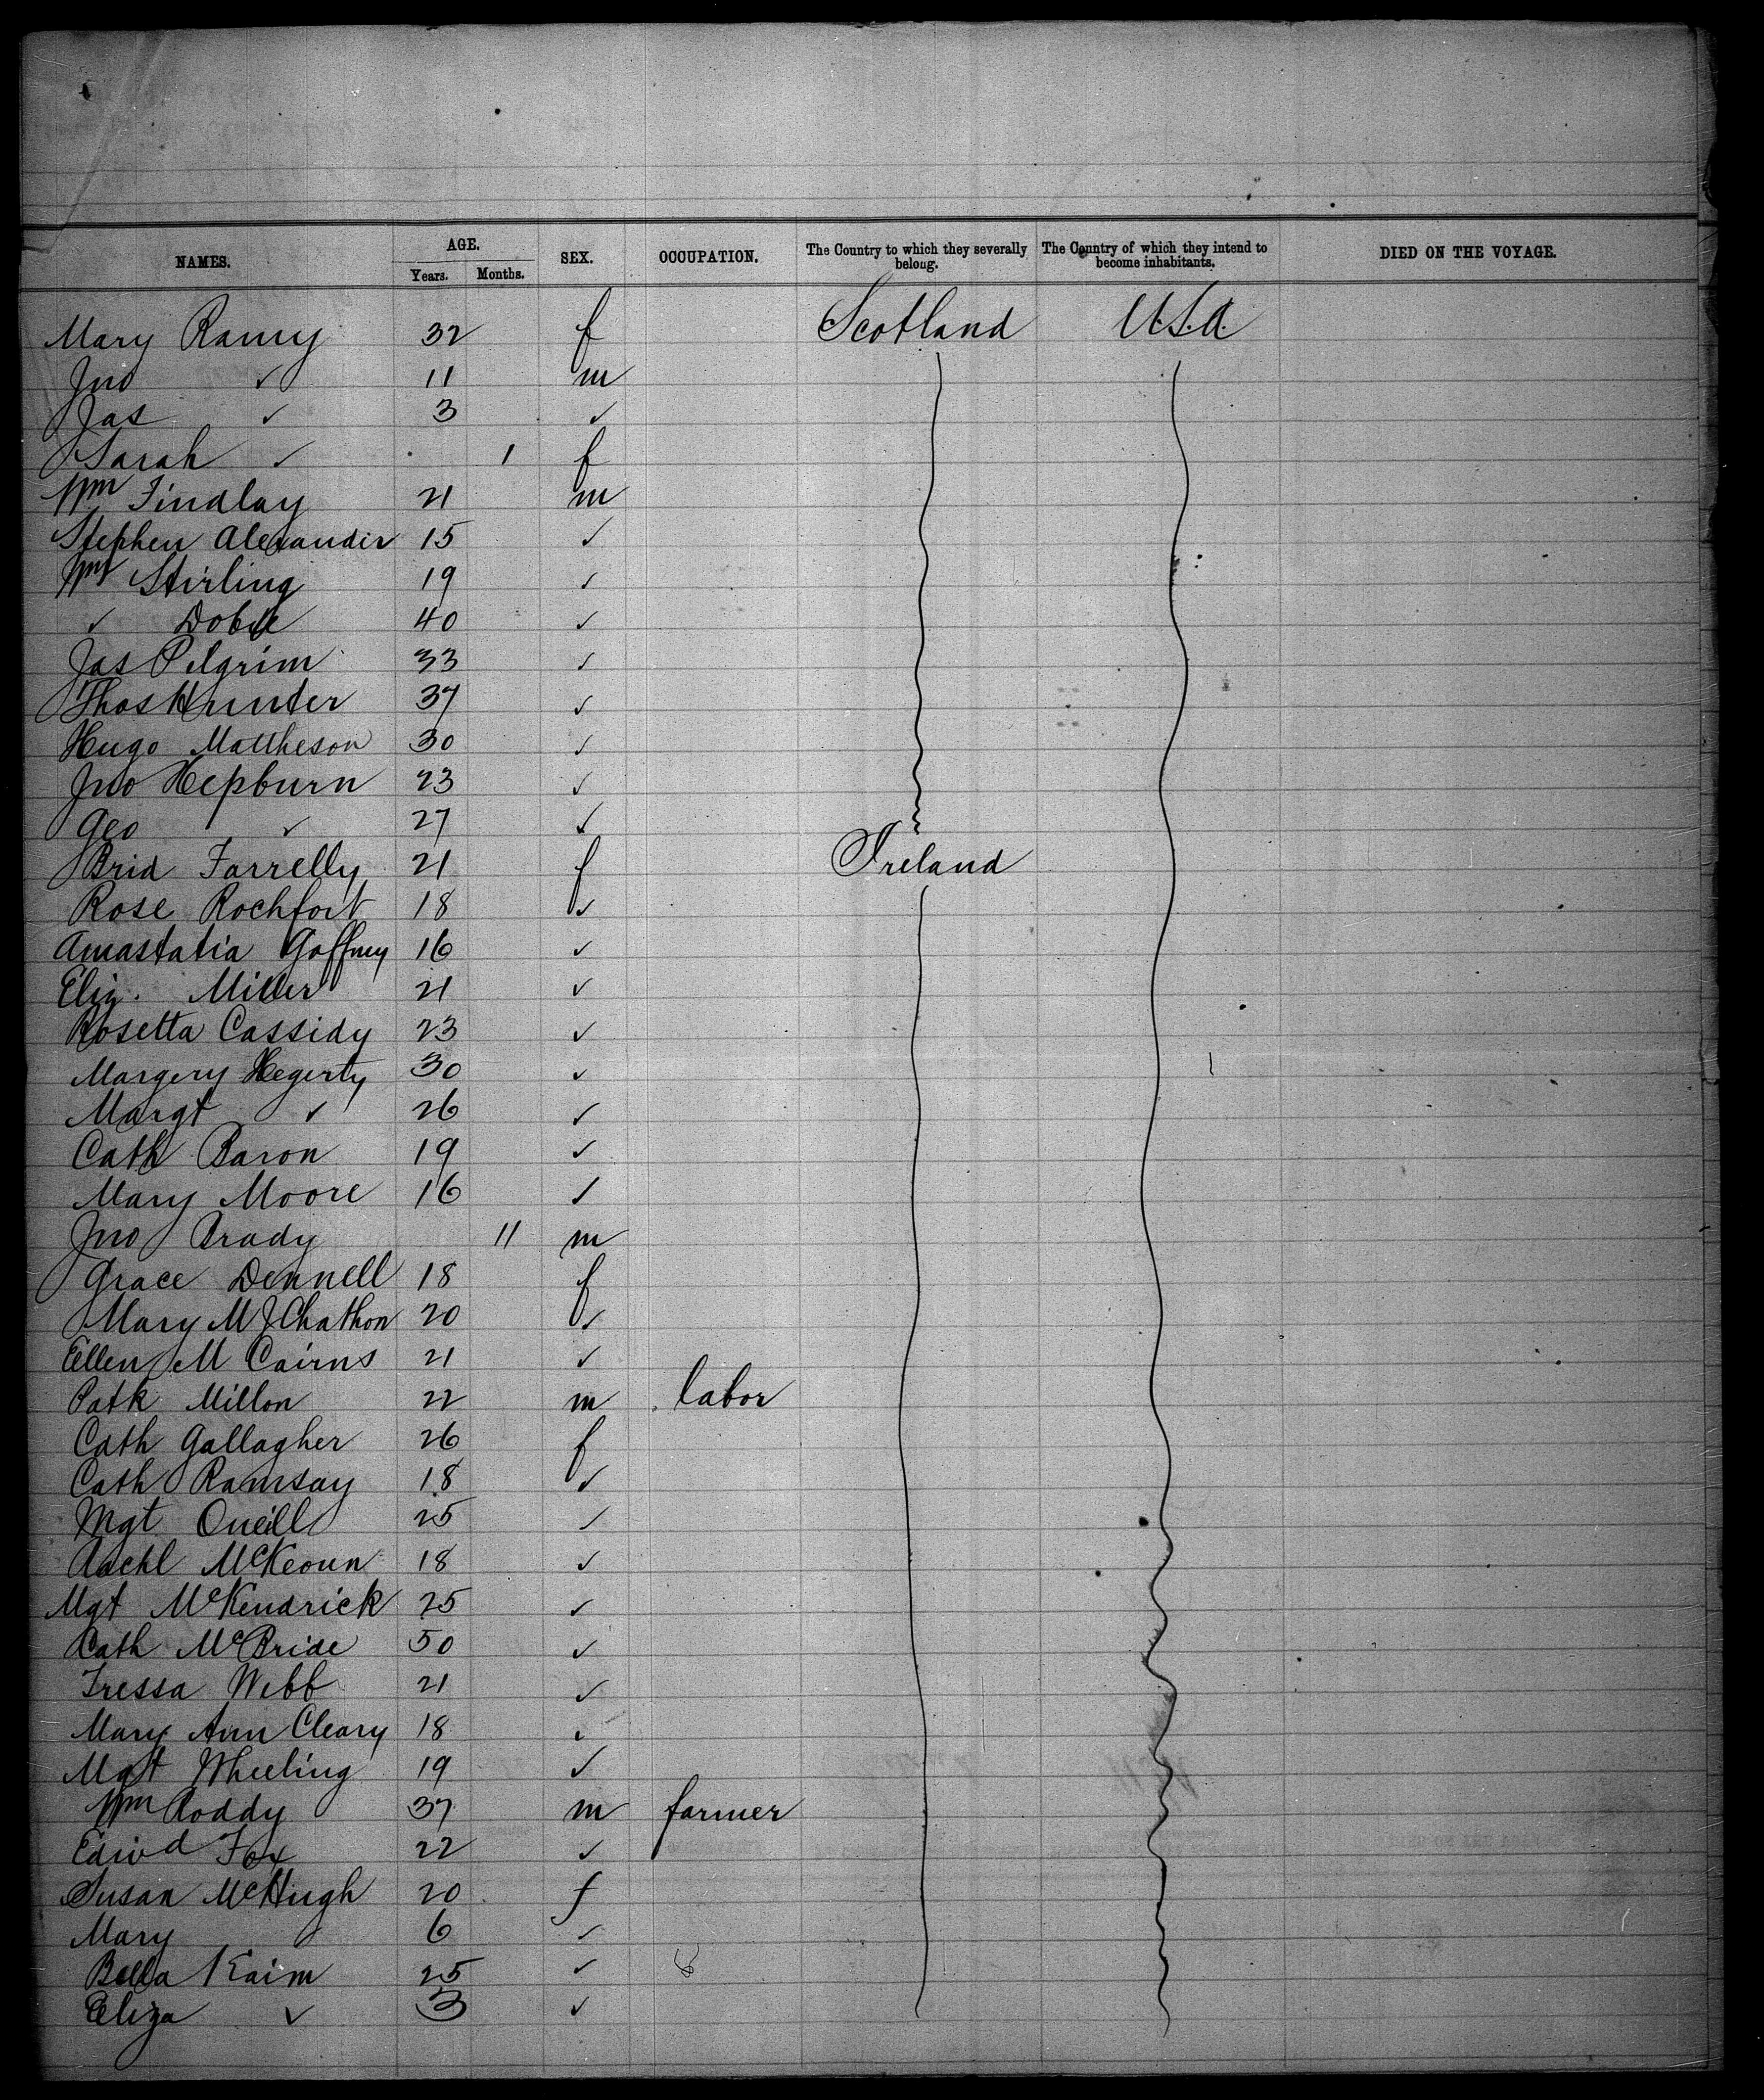 NAMES. AGE. SEX. OCCUPATION. The Country to which they severally belong. The Country of which they intend to become inhabitants. DIED ON THE VOYAGE.
Years. Months.
Mary Ramy 32 f Scotland U.S.A.
Jno ✓ 11 m
Jas ✓ 3 ✓
Sarah ✓ 1 f
Wm Findlay 21 m
Stephen Alexander 15 ✓
Wm Stirling 19 ✓
✓ Dobie 40 ✓
Jas Pilgrim 33 ✓
Thos Hunter 37 ✓
Hugo Mattheson 30 ✓
Jno Hepburn 23 ✓
Geo ✓ 27 ✓
Brid Farrelly 21 f Ireland
Rose Rochfort 18 ✓
Anastatia Gaffney 16 ✓
Eliz. Miller 21 ✓
Rosetta Cassidy 23 ✓
Margery Hegerty 30 ✓
Margt ✓ 26 ✓
Cath Baron 19 ✓
Mary Moore 16 ✓
Jno Brady 11 m
Grace Dennell 18 f
Mary 20 ✓
Ellen M Cairns 21 ✓
Patk Millon 22 m labor
Cath Gallagher 26 f
Cath Ramsay 18 ✓
Mgt Oneill 25 ✓
McKeoun 18 ✓
Mgt McKendrick 25 ✓
Cath McBride 50 ✓
Tressa Webb 21 ✓
Mary Ann Cleary 18 ✓
Mgt Wheeling 19 ✓
Wm Roddy 37 m farmer
Edwd Fox 22 ✓
Susan McHugh 20 f
Mary 6 ✓
Bella Kaim 25 ✓
Eliza ✓ 3 ✓